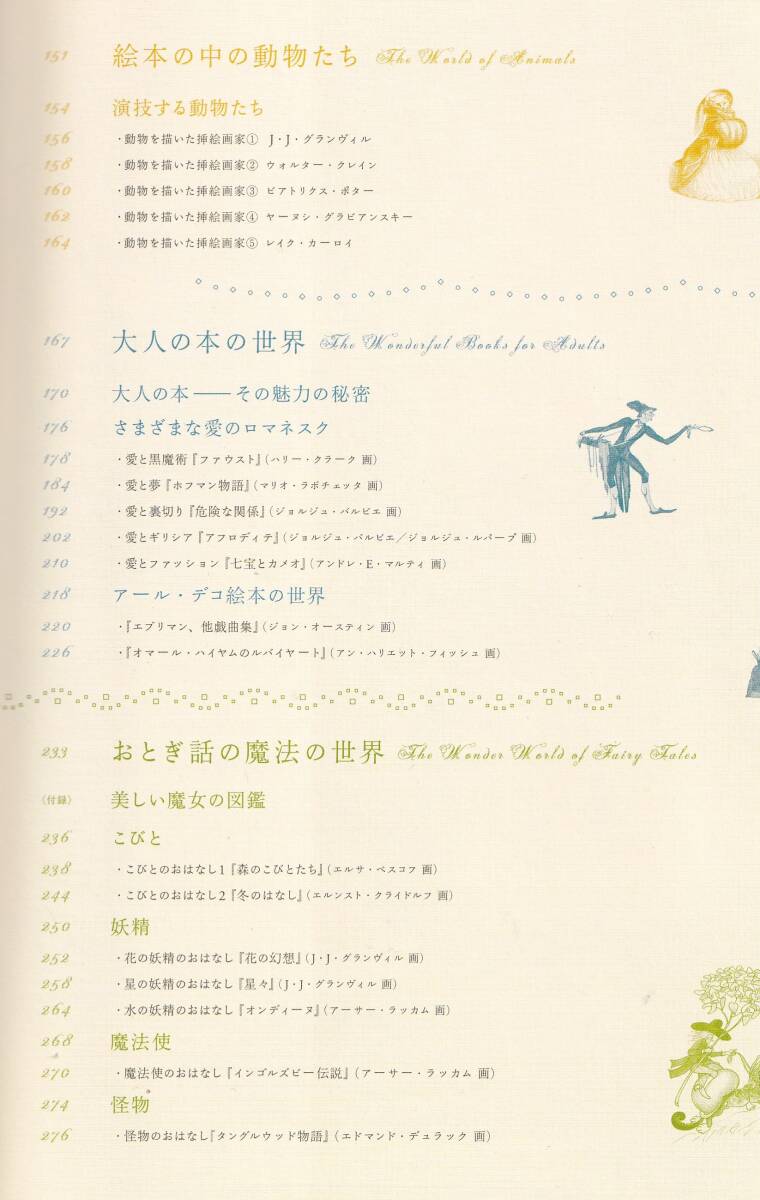 151 絵本の中の動物たち The World of Animals
154 演技する動物たち
156 ・動物を描いた挿絵画家① J・J・グランヴィル
158 ・動物を描いた挿絵画家② ウォルター・クレイン
160 ・動物を描いた挿絵画家③ ビアトリクス・ポター
162 ・動物を描いた挿絵画家④ ヤーヌシ・グラビアンスキー
164 ・動物を描いた挿絵画家⑤ レイク・カーロイ
167 大人の本の世界 The Wonderful Books for Adults
170 大人の本――その魅力の秘密
176 さまざまな愛のロマネスク
178 ・愛と黒魔術『ファウスト』(ハリー・クラーク 画)
184 ・愛と夢『ホフマン物語』(マリオ・ラボチェッタ 画)
192 ・愛と裏切り『危険な関係』(ジョルジュ・バルビエ 画)
202 ・愛とギリシア『アフロディテ』(ジョルジュ・バルビエ/ジョルジュ・ルパープ 画)
210 ・愛とファッション『七宝とカメオ』(アンドレ・E・マルティ 画)
218 アール・デコ絵本の世界
220 ・『エブリマン、他戯曲集』(ジョン・オースティン 画)
226 ・『オマール・ハイヤムのルバイヤート』(アン・ハリエット・フィッシュ 画)
233 おとぎ話の魔法の世界 The Wonder World of Fairy Tales
〈付録〉 美しい魔女の図鑑
236 こびと
238 ・こびとのおはなし1『森のこびとたち』(エルサ・ベスコフ 画)
244 ・こびとのおはなし2『冬のはなし』(エルンスト・クライドルフ 画)
250 妖精
252 ・花の妖精のおはなし『花の幻想』(J・J・グランヴィル 画)
258 ・星の妖精のおはなし『星々』(J・J・グランヴィル 画)
264 ・水の妖精のおはなし『オンディーヌ』(アーサー・ラッカム 画)
268 魔法使
270 ・魔法使のおはなし『インゴルズビー伝説』(アーサー・ラッカム 画)
274 怪物
276 ・怪物のおはなし『タングルウッド物語』(エドマンド・デュラック 画)